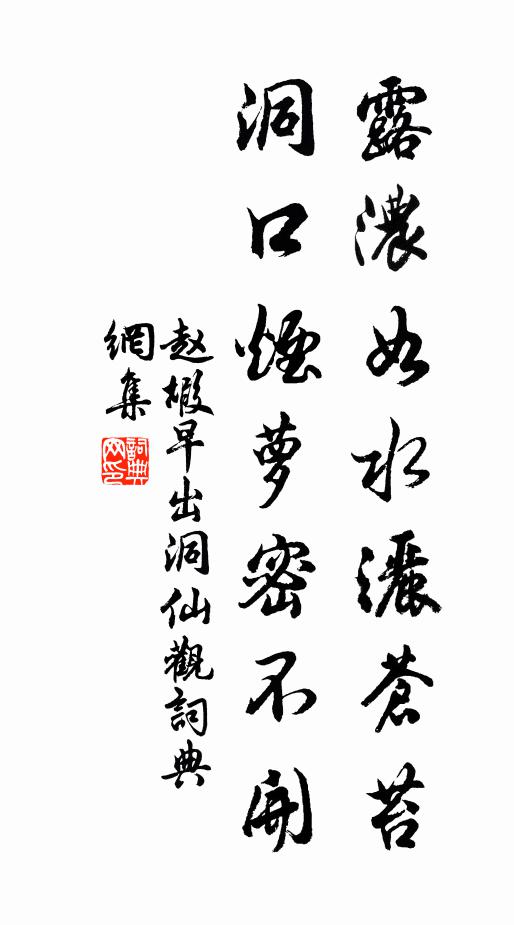 露濃如水灑蒼苔
洞口煙蘿密不開
赵嘏早出洞仙觀詞典
網集
詞典
网印